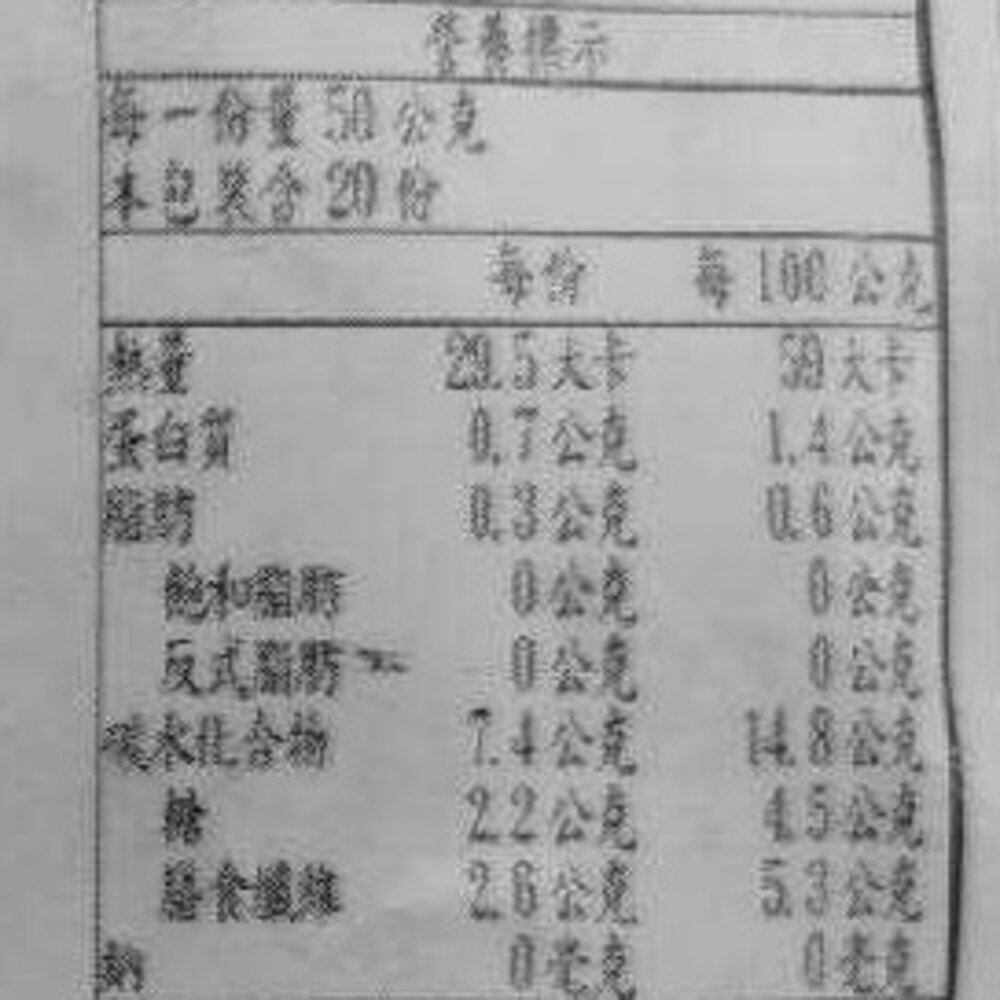 營養標示
每一份量 50 公克
本包裝含 20 份
每份 每 100 公克
熱量 29.5 大卡 59 大卡
蛋白質 0.7 公克 1.4 公克
脂肪 0.3 公克 0.6 公克
飽和脂肪 0 公克 0 公克
反式脂肪 0 公克 0 公克
碳水化合物 7.4 公克 14.8 公克
糖 2.2 公克 4.5 公克
膳食纖維 2.6 公克 5.3 公克
鈉 0 毫克 0 毫克